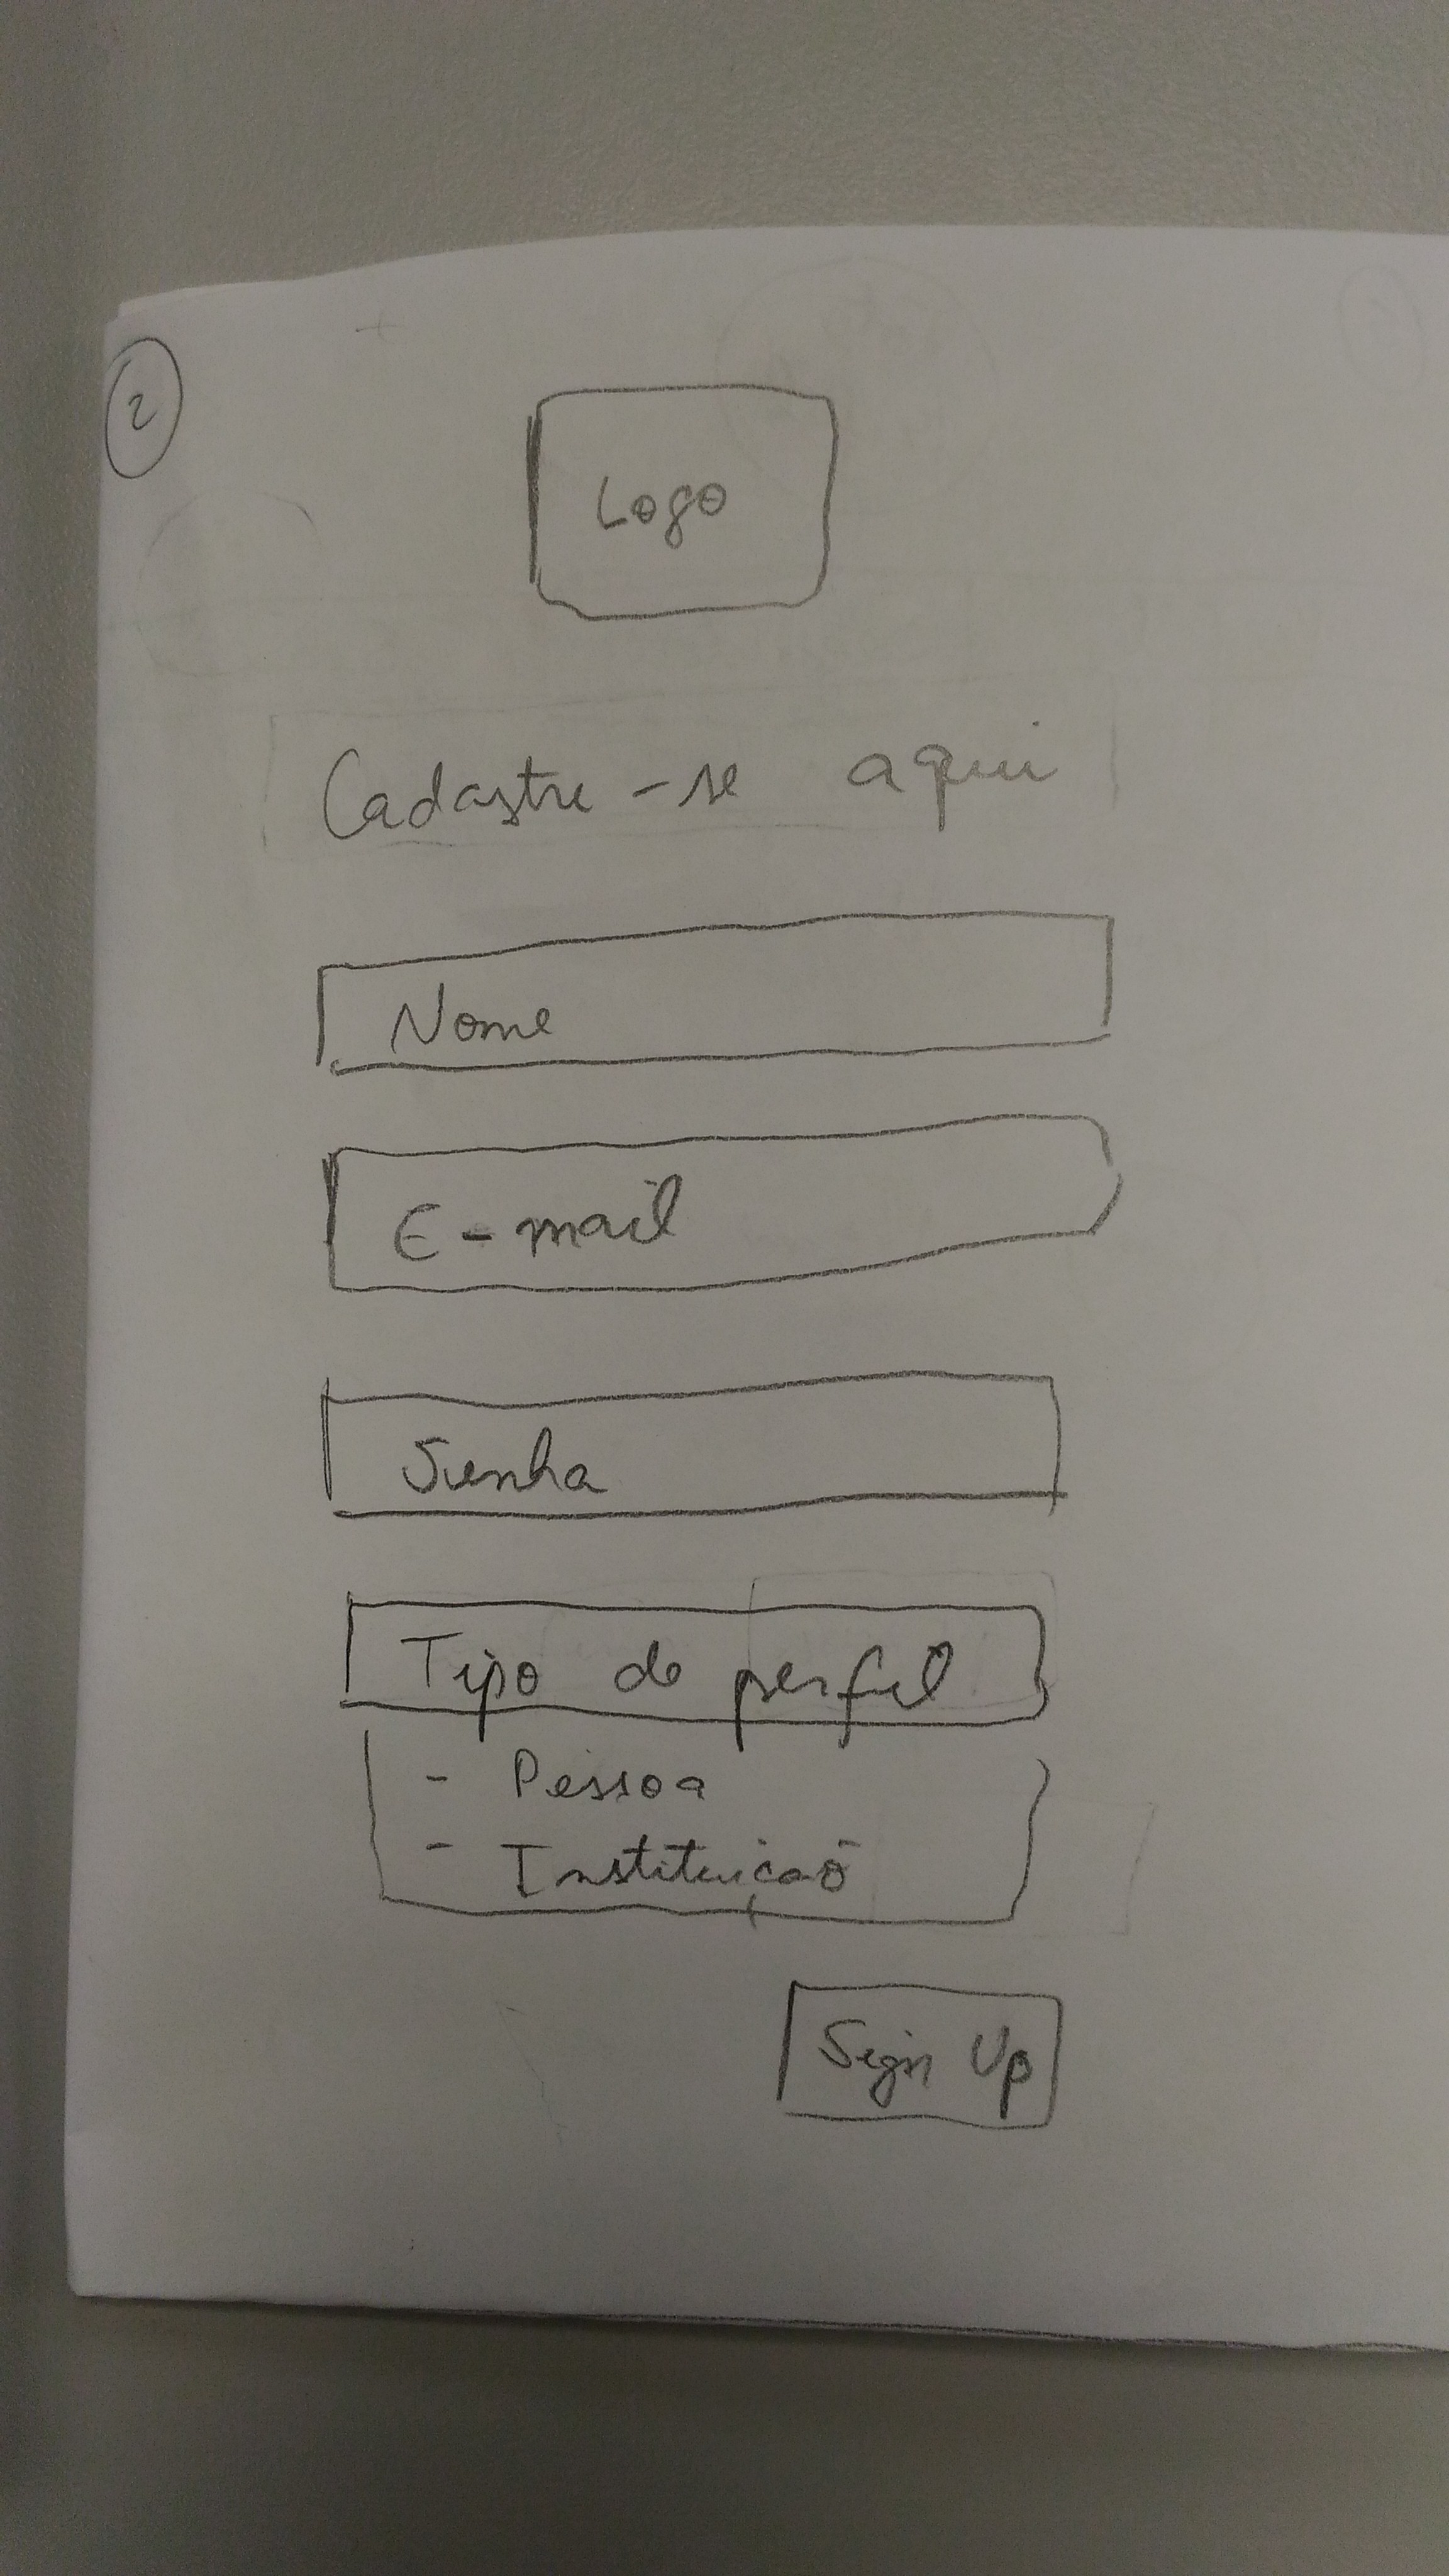 2
Logo
Cadastre-se aqui
Nome
E-mail
Senha
Tipo de perfil
- Pessoa
- Instituição
Sign Up